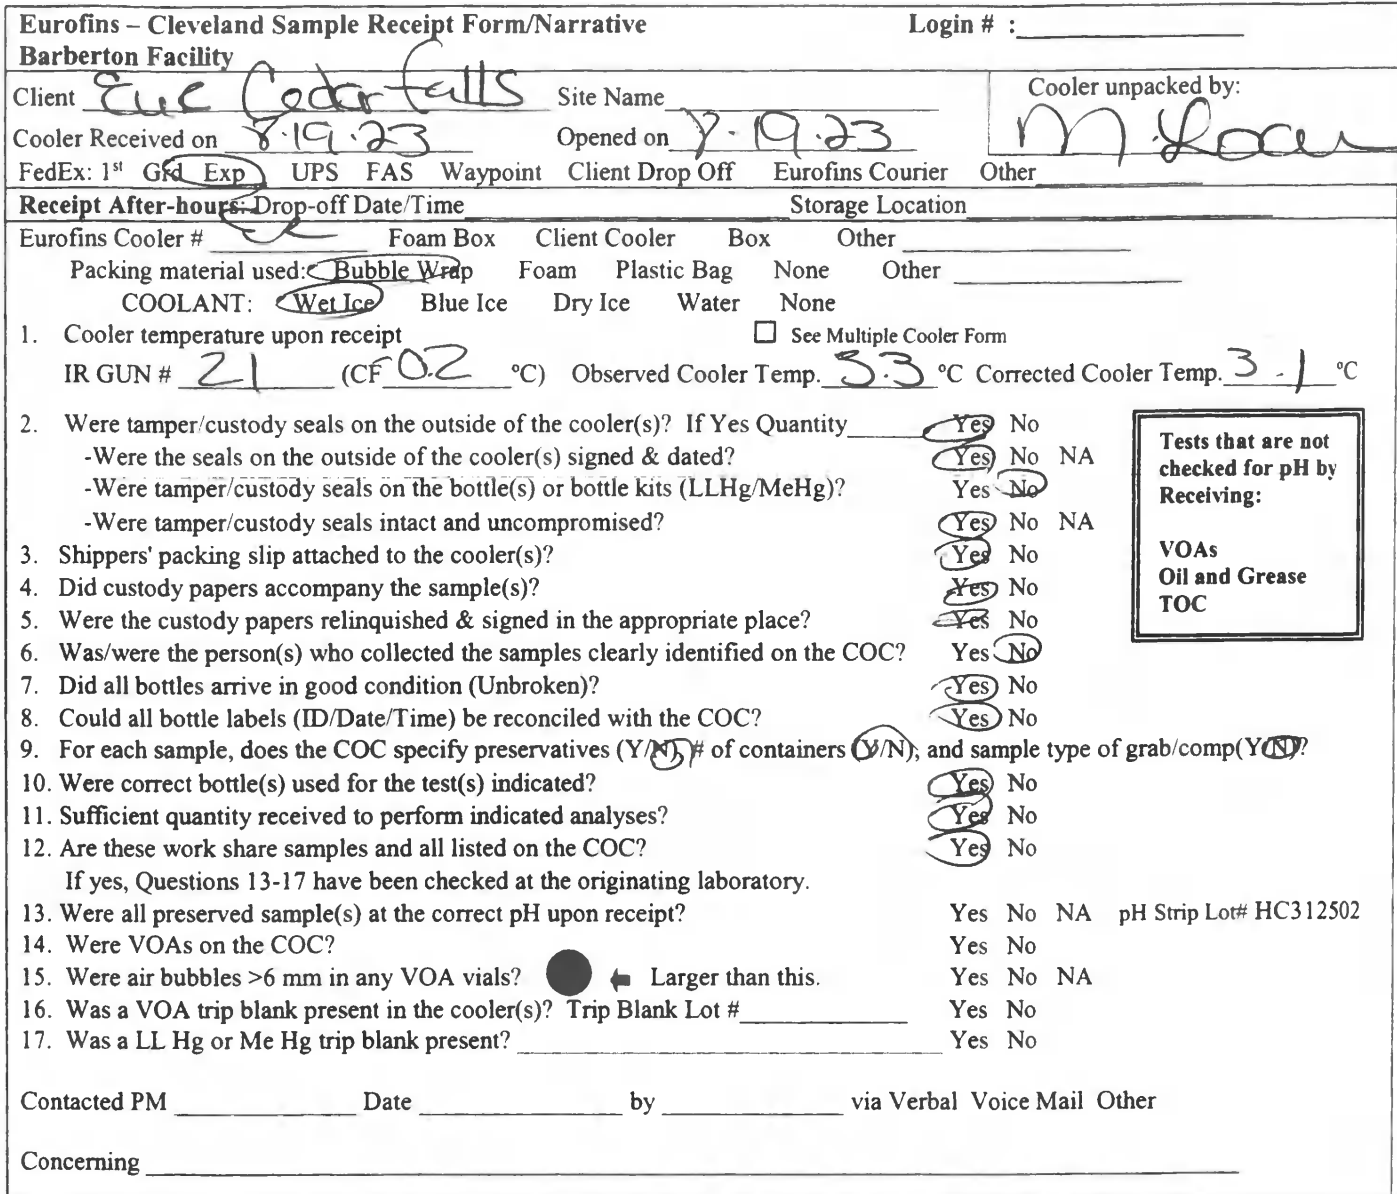 Eurofins – Cleveland Sample Receipt Form/Narrative Login # :
Barberton Facility
Client Eue Cedar Falls Site Name
Cooler unpacked by:
Cooler Received on 8.19.23 Opened on 8.19.23
FedEx: 1st Grd Exp UPS FAS Waypoint Client Drop Off Eurofins Courier Other
Receipt After-hours: Drop-off Date/Time Storage Location
Eurofins Cooler # Foam Box Client Cooler Box Other
Packing material used: Bubble Wrap Foam Plastic Bag None Other
COOLANT: Wet Ice Blue Ice Dry Ice Water None
1. Cooler temperature upon receipt ☐ See Multiple Cooler Form
IR GUN # 21 (CF 0.2 °C) Observed Cooler Temp. 3.3 °C Corrected Cooler Temp. 3.1 °C
2. Were tamper/custody seals on the outside of the cooler(s)? If Yes Quantity Yes No
-Were the seals on the outside of the cooler(s) signed & dated? Yes No NA
-Were tamper/custody seals on the bottle(s) or bottle kits (LLHg/MeHg)? Yes No
-Were tamper/custody seals intact and uncompromised? Yes No NA
3. Shippers' packing slip attached to the cooler(s)? Yes No
4. Did custody papers accompany the sample(s)? Yes No
5. Were the custody papers relinquished & signed in the appropriate place? Yes No
6. Was/were the person(s) who collected the samples clearly identified on the COC? Yes No
7. Did all bottles arrive in good condition (Unbroken)? Yes No
8. Could all bottle labels (ID/Date/Time) be reconciled with the COC? Yes No
9. For each sample, does the COC specify preservatives (Y/N), # of containers (Y/N), and sample type of grab/comp(Y/N)?
10. Were correct bottle(s) used for the test(s) indicated? Yes No
11. Sufficient quantity received to perform indicated analyses? Yes No
12. Are these work share samples and all listed on the COC? Yes No
If yes, Questions 13-17 have been checked at the originating laboratory.
Tests that are not
checked for pH by
Receiving:
VOAs
Oil and Grease
TOC
13. Were all preserved sample(s) at the correct pH upon receipt? Yes No NA pH Strip Lot# HC312502
14. Were VOAs on the COC? Yes No
15. Were air bubbles >6 mm in any VOA vials? Larger than this. Yes No NA
16. Was a VOA trip blank present in the cooler(s)? Trip Blank Lot # Yes No
17. Was a LL Hg or Me Hg trip blank present? Yes No
Contacted PM Date by via Verbal Voice Mail Other
Concerning